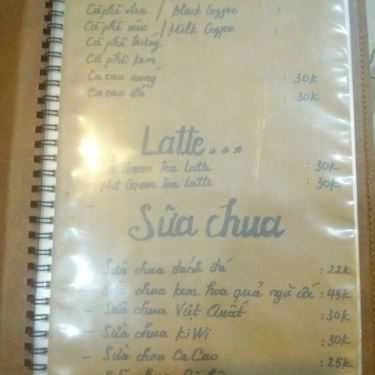 Cà phê đen / Black Coffee
Cà phê nâu / Milk Coffee
Cà phê trứng
Cà phê kem
Ca cao nóng : 30K
Ca cao đá : 30K
Latte...
Green Tea Latte : 30K
Hot Green Tea Latte : 30K
Sữa chua
Sữa chua đánh đá : 22K
Sữa chua kem hoa quả ngũ cốc : 45K
- Sữa chua Việt Quất : 30K
- Sữa chua KiWi : 30K
- Sữa chua Ca Cao : 25K